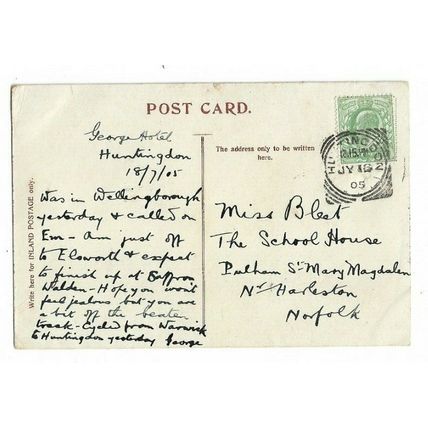 POST CARD.
George Hotel
Huntingdon
18/7/05
The address only to be written
here.
Write here for INLAND POSTAGE only.
Was in Wellingborough
yesterday & called on
Em - Am just off
to Elsworth & expect
to finish up at Saffron
Walden - Hope you won't
feel jealous but you are
a bit off the beaten
track - Cycled from Warwick
to Huntingdon yesterday George
Miss Blest
The School House
Pulham St Mary Magdalen
Nr Harleston
Norfolk
HUNTINGDON
JY 18
05